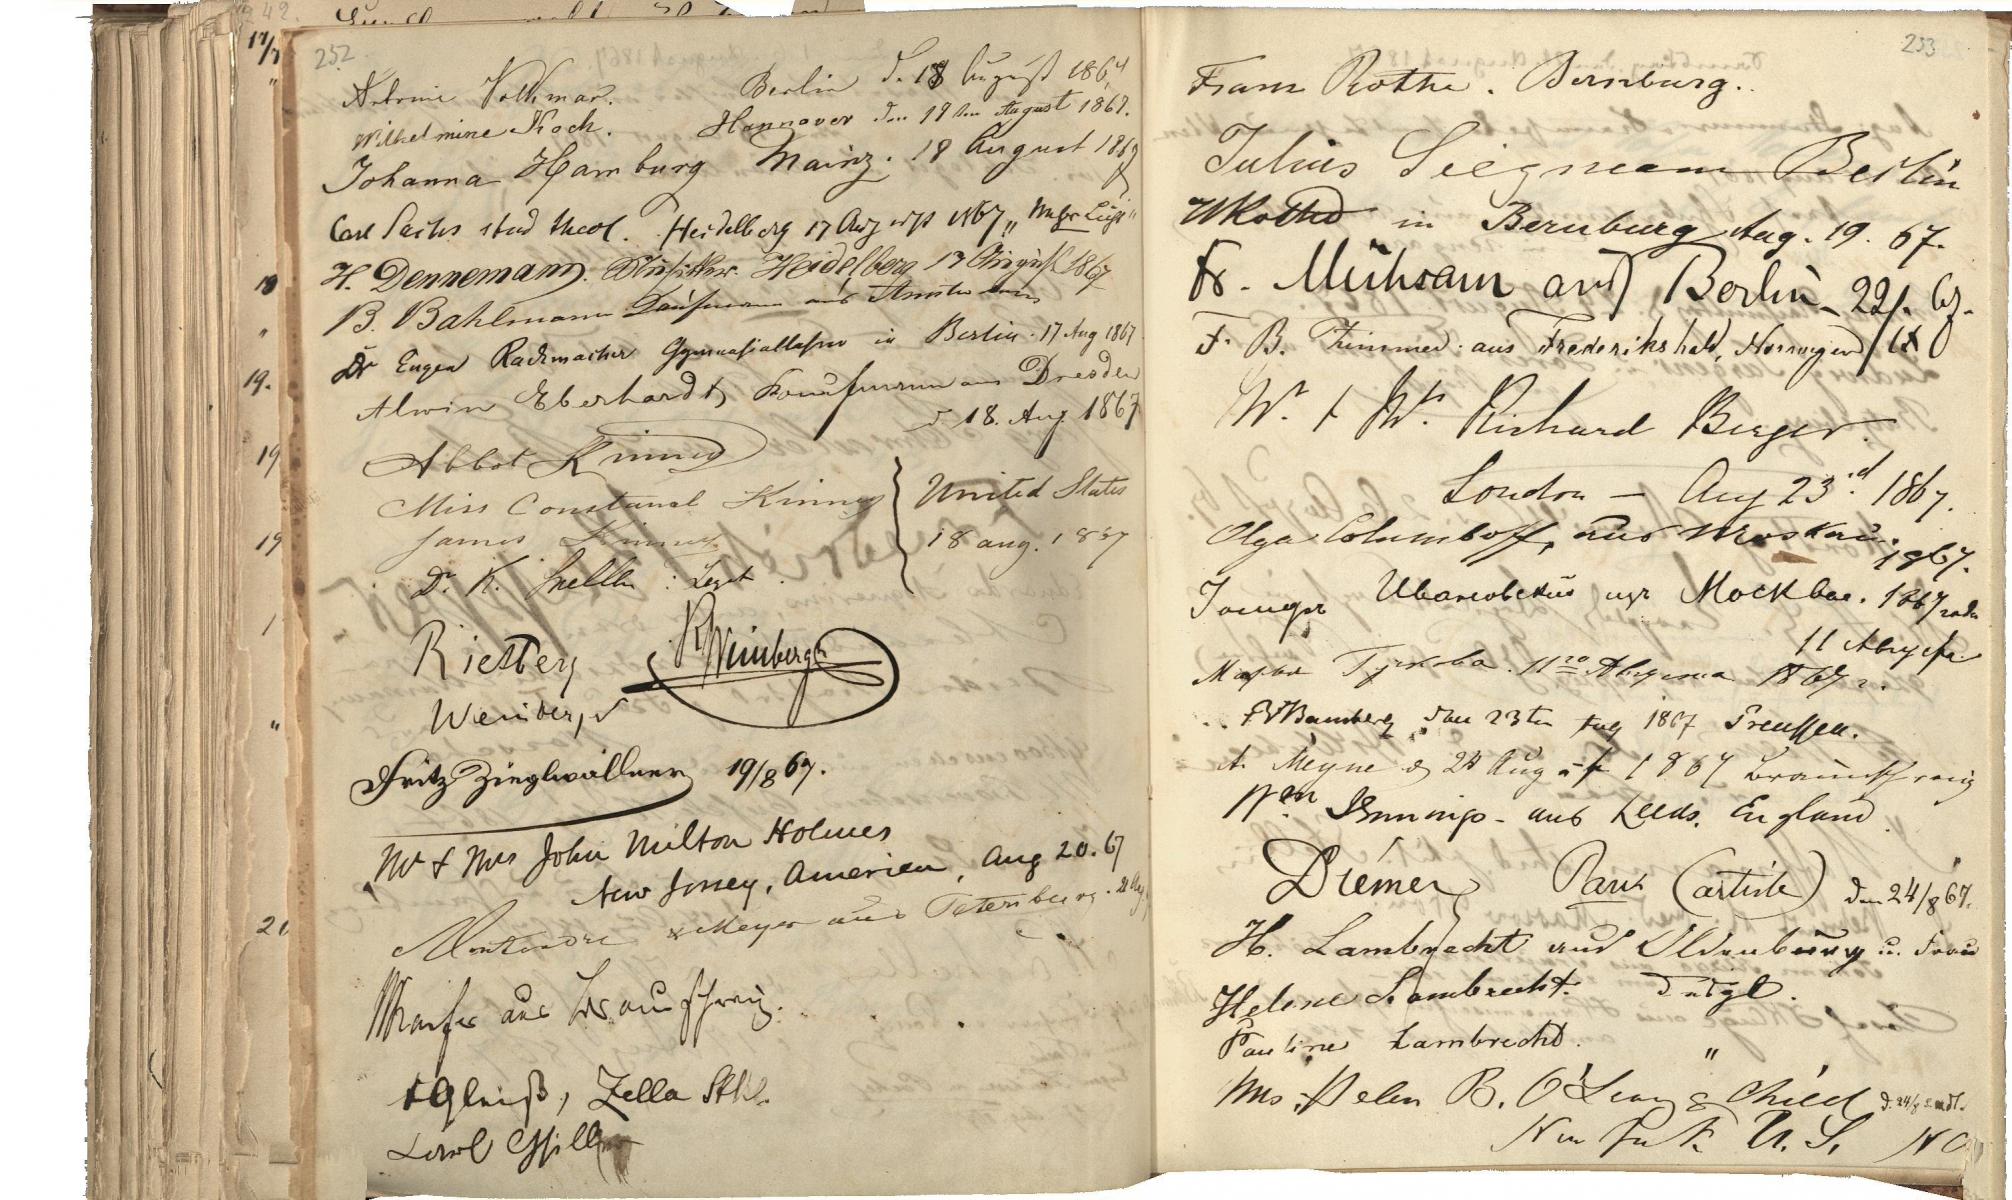 252
Antonie Volkmar. Berlin d. 18 August 1864
Wilhelmine Koch. Hannover den 19ten August 1867.
Johanna Hamburg Mainz. 18 August 1867
Carl Sachs stud theol. Heidelberg 17 August 1867 „Mehr Licht"
H. Dennemann. Musiker. Heidelberg 17 August 1867
B. Bahlmann Kaufmann aus Amsterdam
Dr Eugen Rademacher Gymnasiallehrer in Berlin. 17 Aug 1867
Alwin Eberhardt, Kaufmann aus Dresden
d 18. Aug. 1867
Abbot Kinney
Miss Constance Kinney United States
James Kinney 18 aug. 1867
Dr. K. Snellen
Riester
RWeinberg
Weinberg
Fritz Zieglwallner 19/8 67.
Mr & Mrs John Milton Holmes
New Jersey, America, Aug 20. 67
Meyer aus Petersburg. 21 Aug
aus Braunschweig.
Zella St Bl.
Carl
17/
"
18
"
19.
19
19
1
"
21
253
Franz Rothe. Bernburg.
Julius Siegmann Berlin
in Bernburg Aug. 19. 67.
Fr. Mühsam aus Berlin 22/. 67.
F. B. aus Frederikshald, Norwegen
Mr & Mrs Richard Berger.
London — Aug 23rd 1867.
Olga Columboff, aus Moskau. 1867.
Ивановскій изъ Москвы. 1867 года
11 Августа
Марья 11го Августа 1867 г.
Bamberg den 23ten Aug 1867 Preussen.
A. Meyne d 24 August 1867 Braunschweig
Wm Jennings - aus Leeds. England
Diémer Paris (artiste) den 24/8 67.
H. Lambrecht aus Oldenburg u. Frau
Helene Lambrecht. desgl.
Pauline Lambrecht. "
Mrs. Helen B. O' & Child d. 24/8
New York U. S. N A